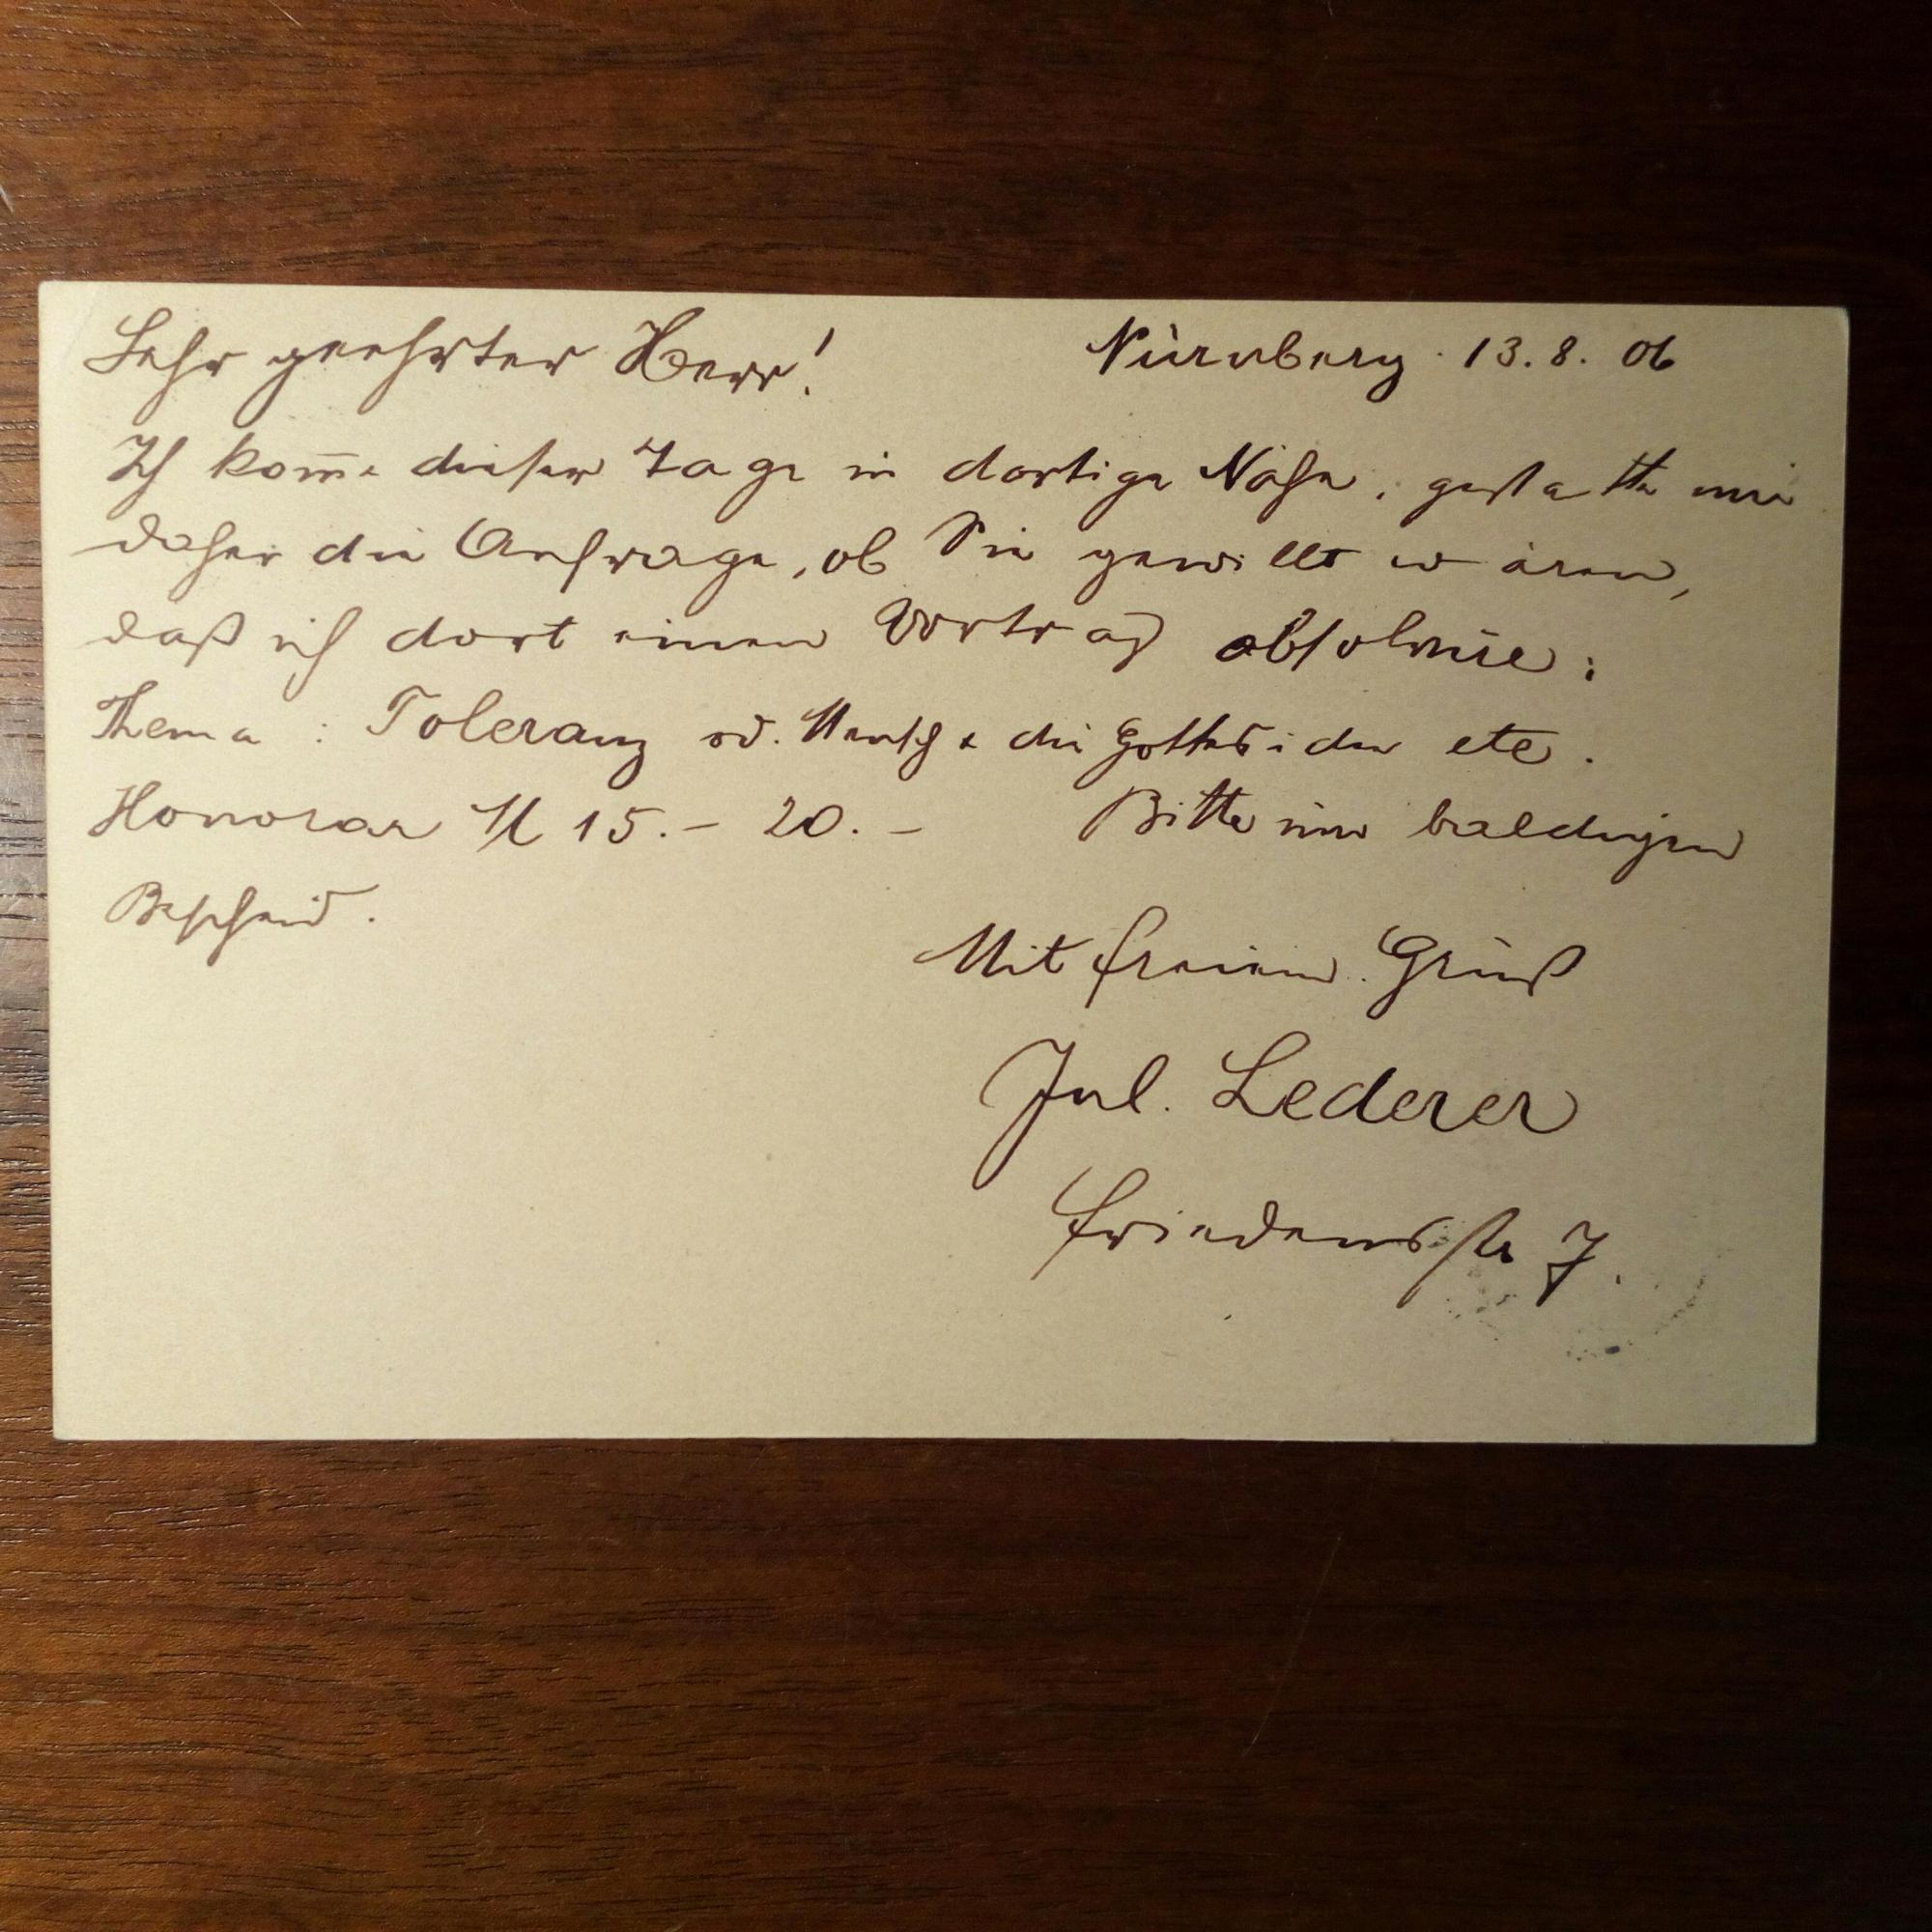 Sehr geehrter Herr! Nürnberg 13.8.06
Ich kom̄e dieser Tage in dortige Nähe, gestatte mir
daher die Anfrage, ob Sie gewillt wären,
daß ich dort einen Vortrag absolviere:
Thema: Toleranz od. Mensch & die Gottesidee etc.
Honorar M 15.– 20.– Bitte um baldigen
Bescheid.
Mit freiem Gruß
Jul. Lederer
Friedensstr 7.